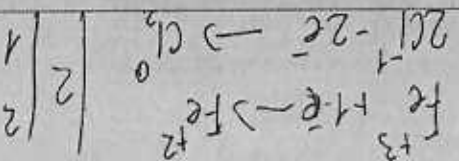 Fe⁺³ +1·ē → Fe⁺² | 2 | 2
2Cl⁻¹ - 2ē → Cl₂⁰ | 2 | 1